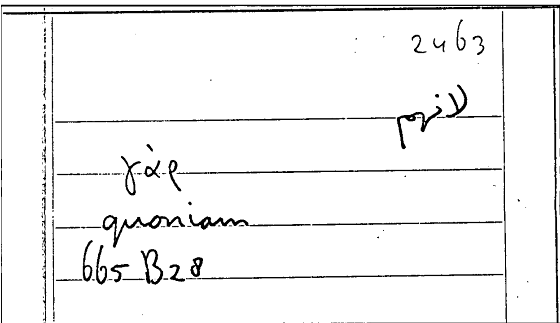 2463
لانهم
γὰρ
quoniam
665 B28